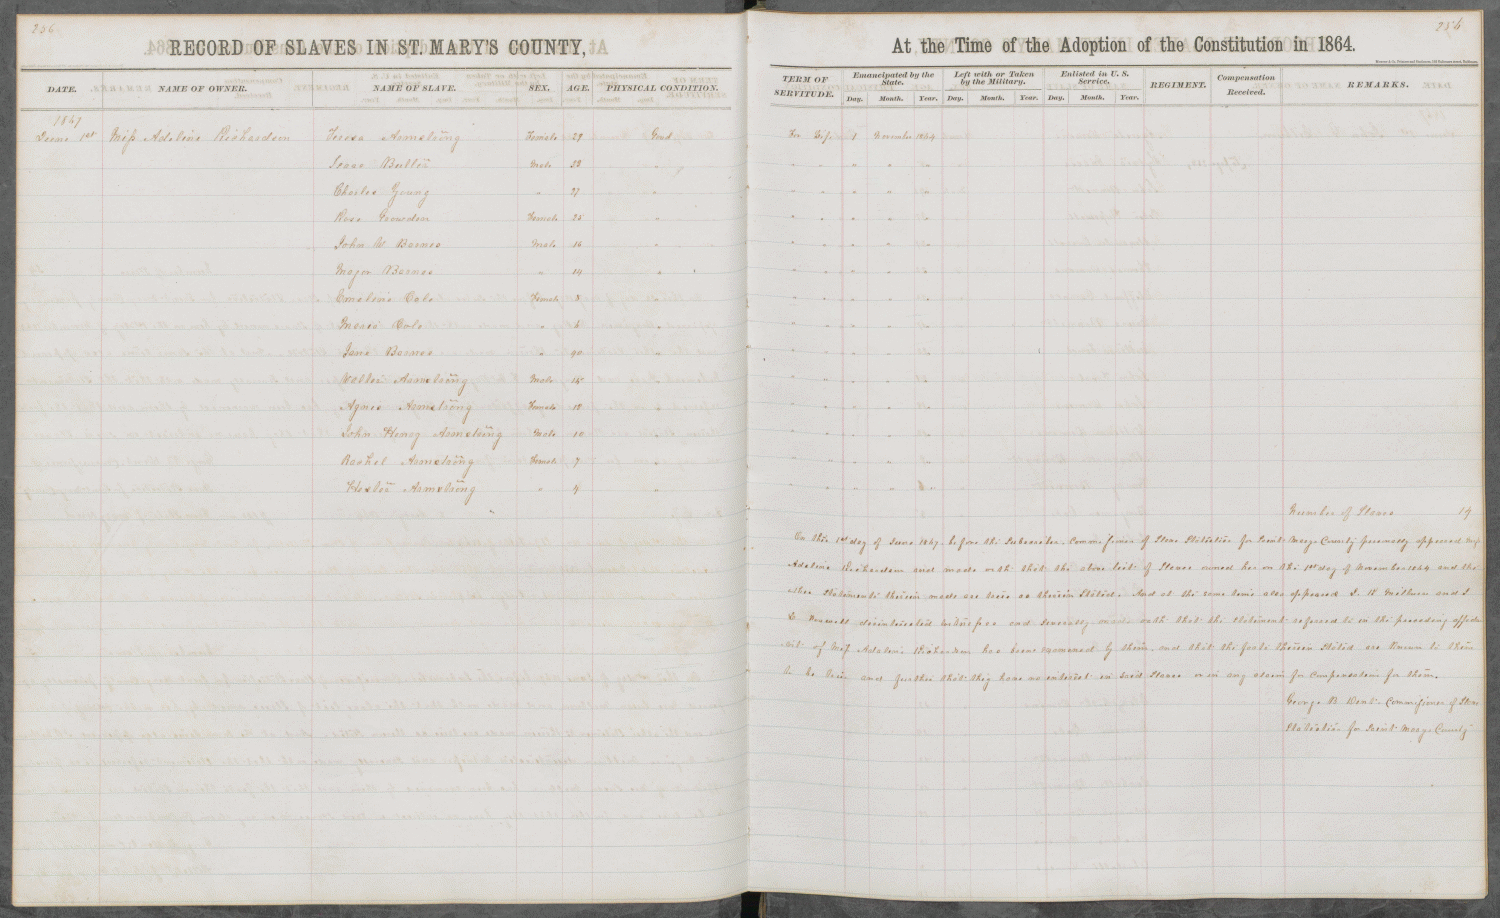 236
RECORD OF SLAVES IN ST. MARY'S COUNTY,
DATE. NAME OF OWNER. NAME OF SLAVE. SEX. AGE. PHYSICAL CONDITION.
1867
June 1st Miss Adeline Richardson Teresa Armstrong Female 29 Good
Isaac Butler Male 32 "
Charles Young " 27 "
Rose Growden Female 25 "
John W Barnes Male 16 "
Major Barnes " 14 "
Emeline Cole Female 8 "
Cole " 6 "
Jane Barnes " 40 "
Walter Armstrong Male 15 "
Agnes Armstrong Female 12 "
John Henry Armstrong Male 10 "
Rachel Armstrong Female 7 "
Hester Armstrong " 4 "
236
At the Time of the Adoption of the Constitution in 1864.
TERM OF SERVITUDE. Emancipated by the State. Left with or Taken by the Military. Enlisted in U. S. Service. REGIMENT. Compensation Received. REMARKS.
Day. Month. Year. Day. Month. Year. Day. Month. Year.
For Life 1 November 1864
Number of Slaves 14
On this 1st day of June 1867, before the Subscriber, Commissioner of Slave Statistics for Saint Marys County personally appeared Miss
Adeline Richardson and made oath that the above list of Slaves owned her on the 1st day of November 1864 and the
other Statements therein made are true as therein Stated. And at the same time also appeared J. H. Milburn and J
disinterested witnesses and severally made oath that the statement referred to in the preceeding affida
vit of Miss Adeline Richardson has been examined by them, and that the facts therein Stated are Known to them
to be true and further that they have no interest in said Slaves or in any claim for Compensation for them.
George B Dent Commissioner of Slave
Statistics for Saint Marys County